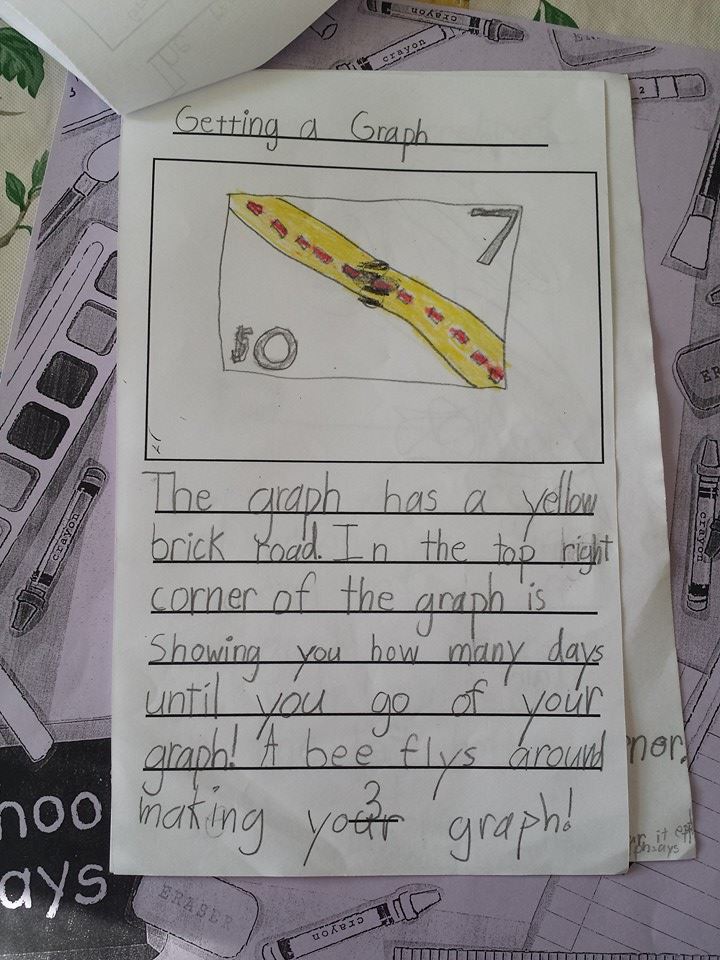 crayon
crayon
2
Getting a Graph
7
50
The graph has a yellow
brick road. In the top right
corner of the graph is
Showing you how many days
until you go of your
graph! A bee flys around
making your graph!
3
nor.
crayon
crayon
noo
ays
ERASER
crayon
ER
it